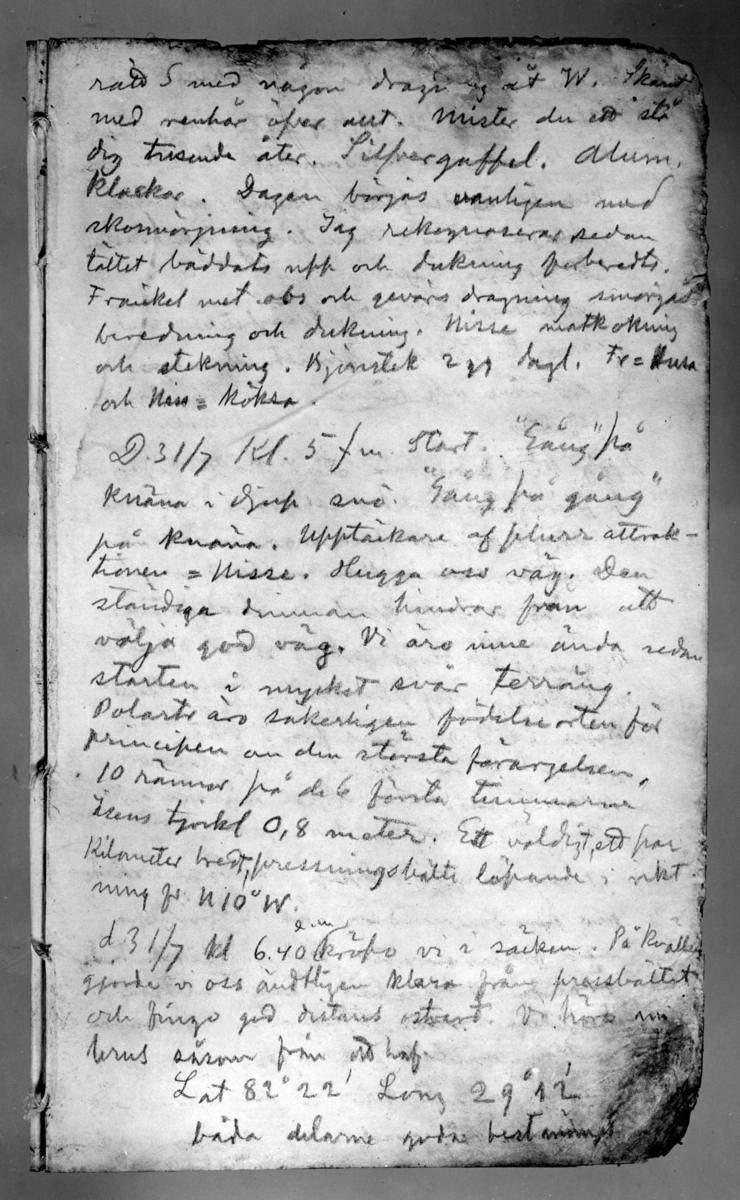 rätt S med någon dragning åt W. Skämt
med renhår öfver allt. Mister du ett stå
dig tusende åter. Silfvergaffel. Alum.
klackar. Dagen börjas vanligen med
skosmörjning. Jag rekognoserar sedan
tältet bäddats upp och dukning förberedts.
Frænkel met. obs och gevärs dragning smörgås
beredning och dukning. Nisse matkokning
och stekning. Björnstek 2 gg dagl. Fr = Husa
och Niss = Köksa.
D. 31/7 Kl. 5 f m Start. "Gång" på
knäna i djup snö. "Gång på gång"
på knäna. Upptäckare af plurr attrak-
tionen = Nisse. Hugga oss väg. Den
ständiga dimman hindrar från att
välja god väg. Vi äro inne ända sedan
starten i mycket svår terräng.
Polartr äro säkerligen födelseorten för
principen om den största förargelsen.
10 rännor på de 6 första timmarne
Isens tjockl 0,8 meter. Ett väldigt, ett par
kilometer bredt, pressningsbälte löpande i rikt
ning fr N10°W.
d. 31/7 kl 6.40 e.m kröpo vi i säcken. På kvällen
gjorde vi oss ändtligen klara från pressbältet
och fingo god distans ostvard. Vi höra nu
brus såsom från ett haf.
Lat 82° 22' Long 29° 42'
båda delarne goda bestämn